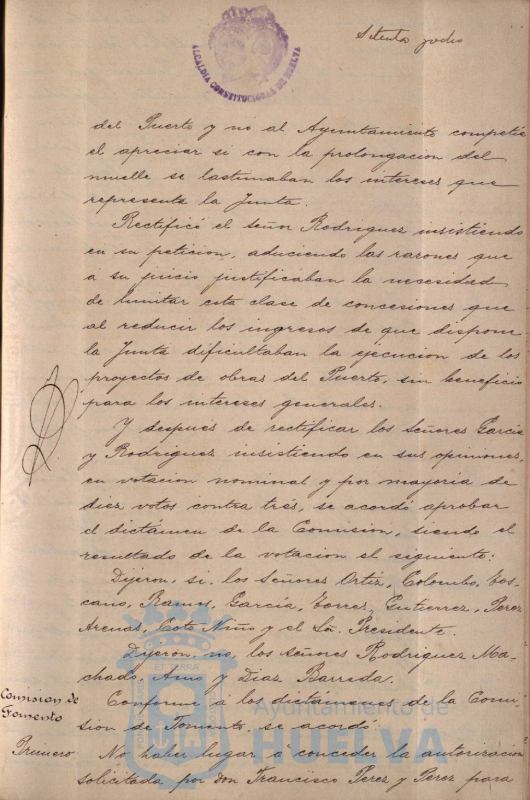 Setenta y ocho
ALCALDIA CONSTITUCIONAL DE HUELVA
del Puerto y no al Ayuntamiento competia
el apreciar si con la prolongacion del
muelle se lastimaban los intereses que
representa la Junta.
Rectificó el Señor Rodriguez insistiendo
en su peticion, aduciendo las razones que
á su juicio justificaban la necesidad
de limitar esta clase de concesiones que
al reducir los ingresos de que dispone
la Junta dificultaban la ejecucion de los
proyectos de obras del Puerto, sin beneficio
para los intereses generales.
Y despues de rectificar los Señores Garcia
y Rodriguez insistiendo en sus opiniones,
en votacion nominal y por mayoria de
diez votos contra trés, se acordó aprobar
el dictámen de la Comision, siendo el
resultado de la votacion el siguiente:
Dijeron, si, los Señores Ortiz, Colombo, Tos-
cano, Ramos, García, Torres, Gutierrez, Perez
Arenas, Coto Niño y el Sr. Presidente.
Dijeron, no, los señores Rodriguez Ma-
chado, y Diaz Barreda.
Comision de
Fomento
Conforme á los dictámenes de la Comi-
sion de Fomento se acordó
Primero
No haber lugar á conceder la autorizacion
solicitada por don Francisco Perez y Perez para
Ayuntamiento de
HUELVA